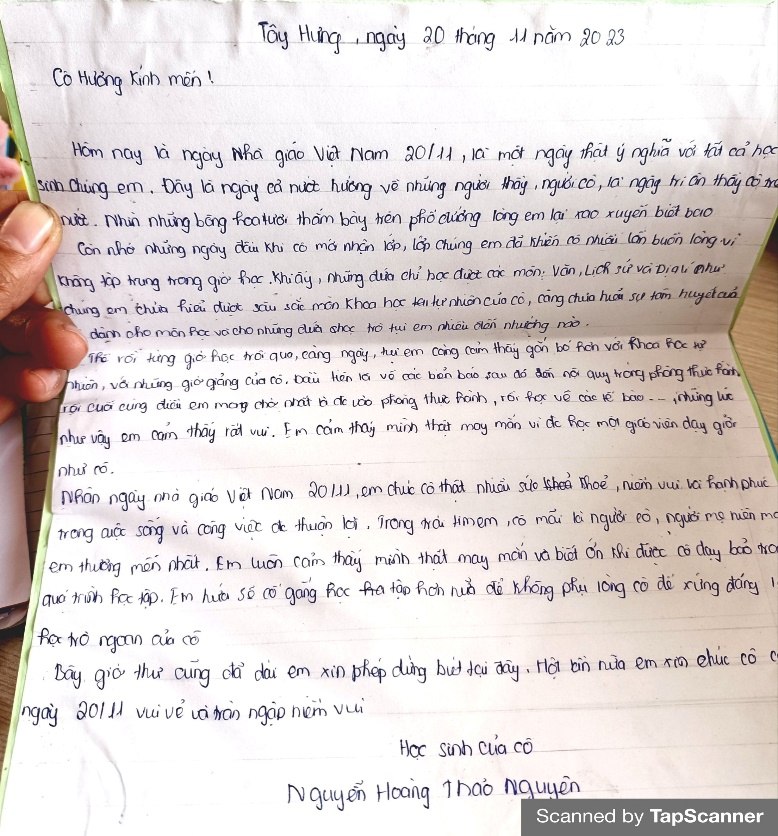 Tây Hưng, ngày 20 tháng 11 năm 2023
Cô Hường kính mến!
Hôm nay là ngày Nhà giáo Việt Nam 20/11, là một ngày thật ý nghĩa với tất cả học
sinh chúng em. Đây là ngày cả nước hướng về những người thầy, người cô, là ngày tri ân thầy cô
nước. Nhìn những bông hoa tươi thắm bày trên phố đường lòng em lại xao xuyến biết bao
Còn nhớ những ngày đầu khi cô mới nhận lớp, lớp chúng em đã khiến cô nhiều lần buồn lòng vì
không tập trung trong giờ học. Khi ấy, những đứa chỉ học được các môn: Văn, Lịch sử và Địa lí như
chúng em chưa hiểu được sâu sắc môn Khoa học tự nhiên của cô, càng chưa hiểu sự tâm huyết
dành cho môn học và cho những đứa học trò tụi em nhiều đến nhường nào.
Thế rồi từng giờ học trôi qua, càng ngày, tụi em càng cảm thấy gắn bó hơn với Khoa học tự
nhiên, với những giờ giảng của cô. Đầu tiên là về các sau đó đến nội quy trong phòng thực hành
rồi cuối cùng điều em mong chờ nhất là đc vào phòng thực hành, rồi học về các tế bào..., những lúc
như vậy em cảm thấy rất vui. Em cảm thấy mình thật may mắn vì đc học một giáo viên dạy giỏi
như cô.
Nhân ngày nhà giáo Việt Nam 20/11, em chúc cô thật nhiều sức khoẻ, niềm vui và hạnh phúc
trong cuộc sống và công việc đc thuận lợi. Trong trái tim em, cô mãi là người cô, người mẹ hiền mà
em thương mến nhất. Em luôn cảm thấy mình thật may mắn và biết ơn khi được cô dạy bảo
quá trình học tập. Em hứa sẽ cố gắng học tập hơn nữa để không phụ lòng cô để xứng đáng
học trò ngoan của cô
Bây giờ thư cũng đã dài em xin phép dừng bút tại đây. Một lần nữa em xin chúc cô
ngày 20/11 vui vẻ và tràn ngập niềm vui
Học sinh của cô
Nguyễn Hoàng Thảo Nguyên
Scanned by TapScanner